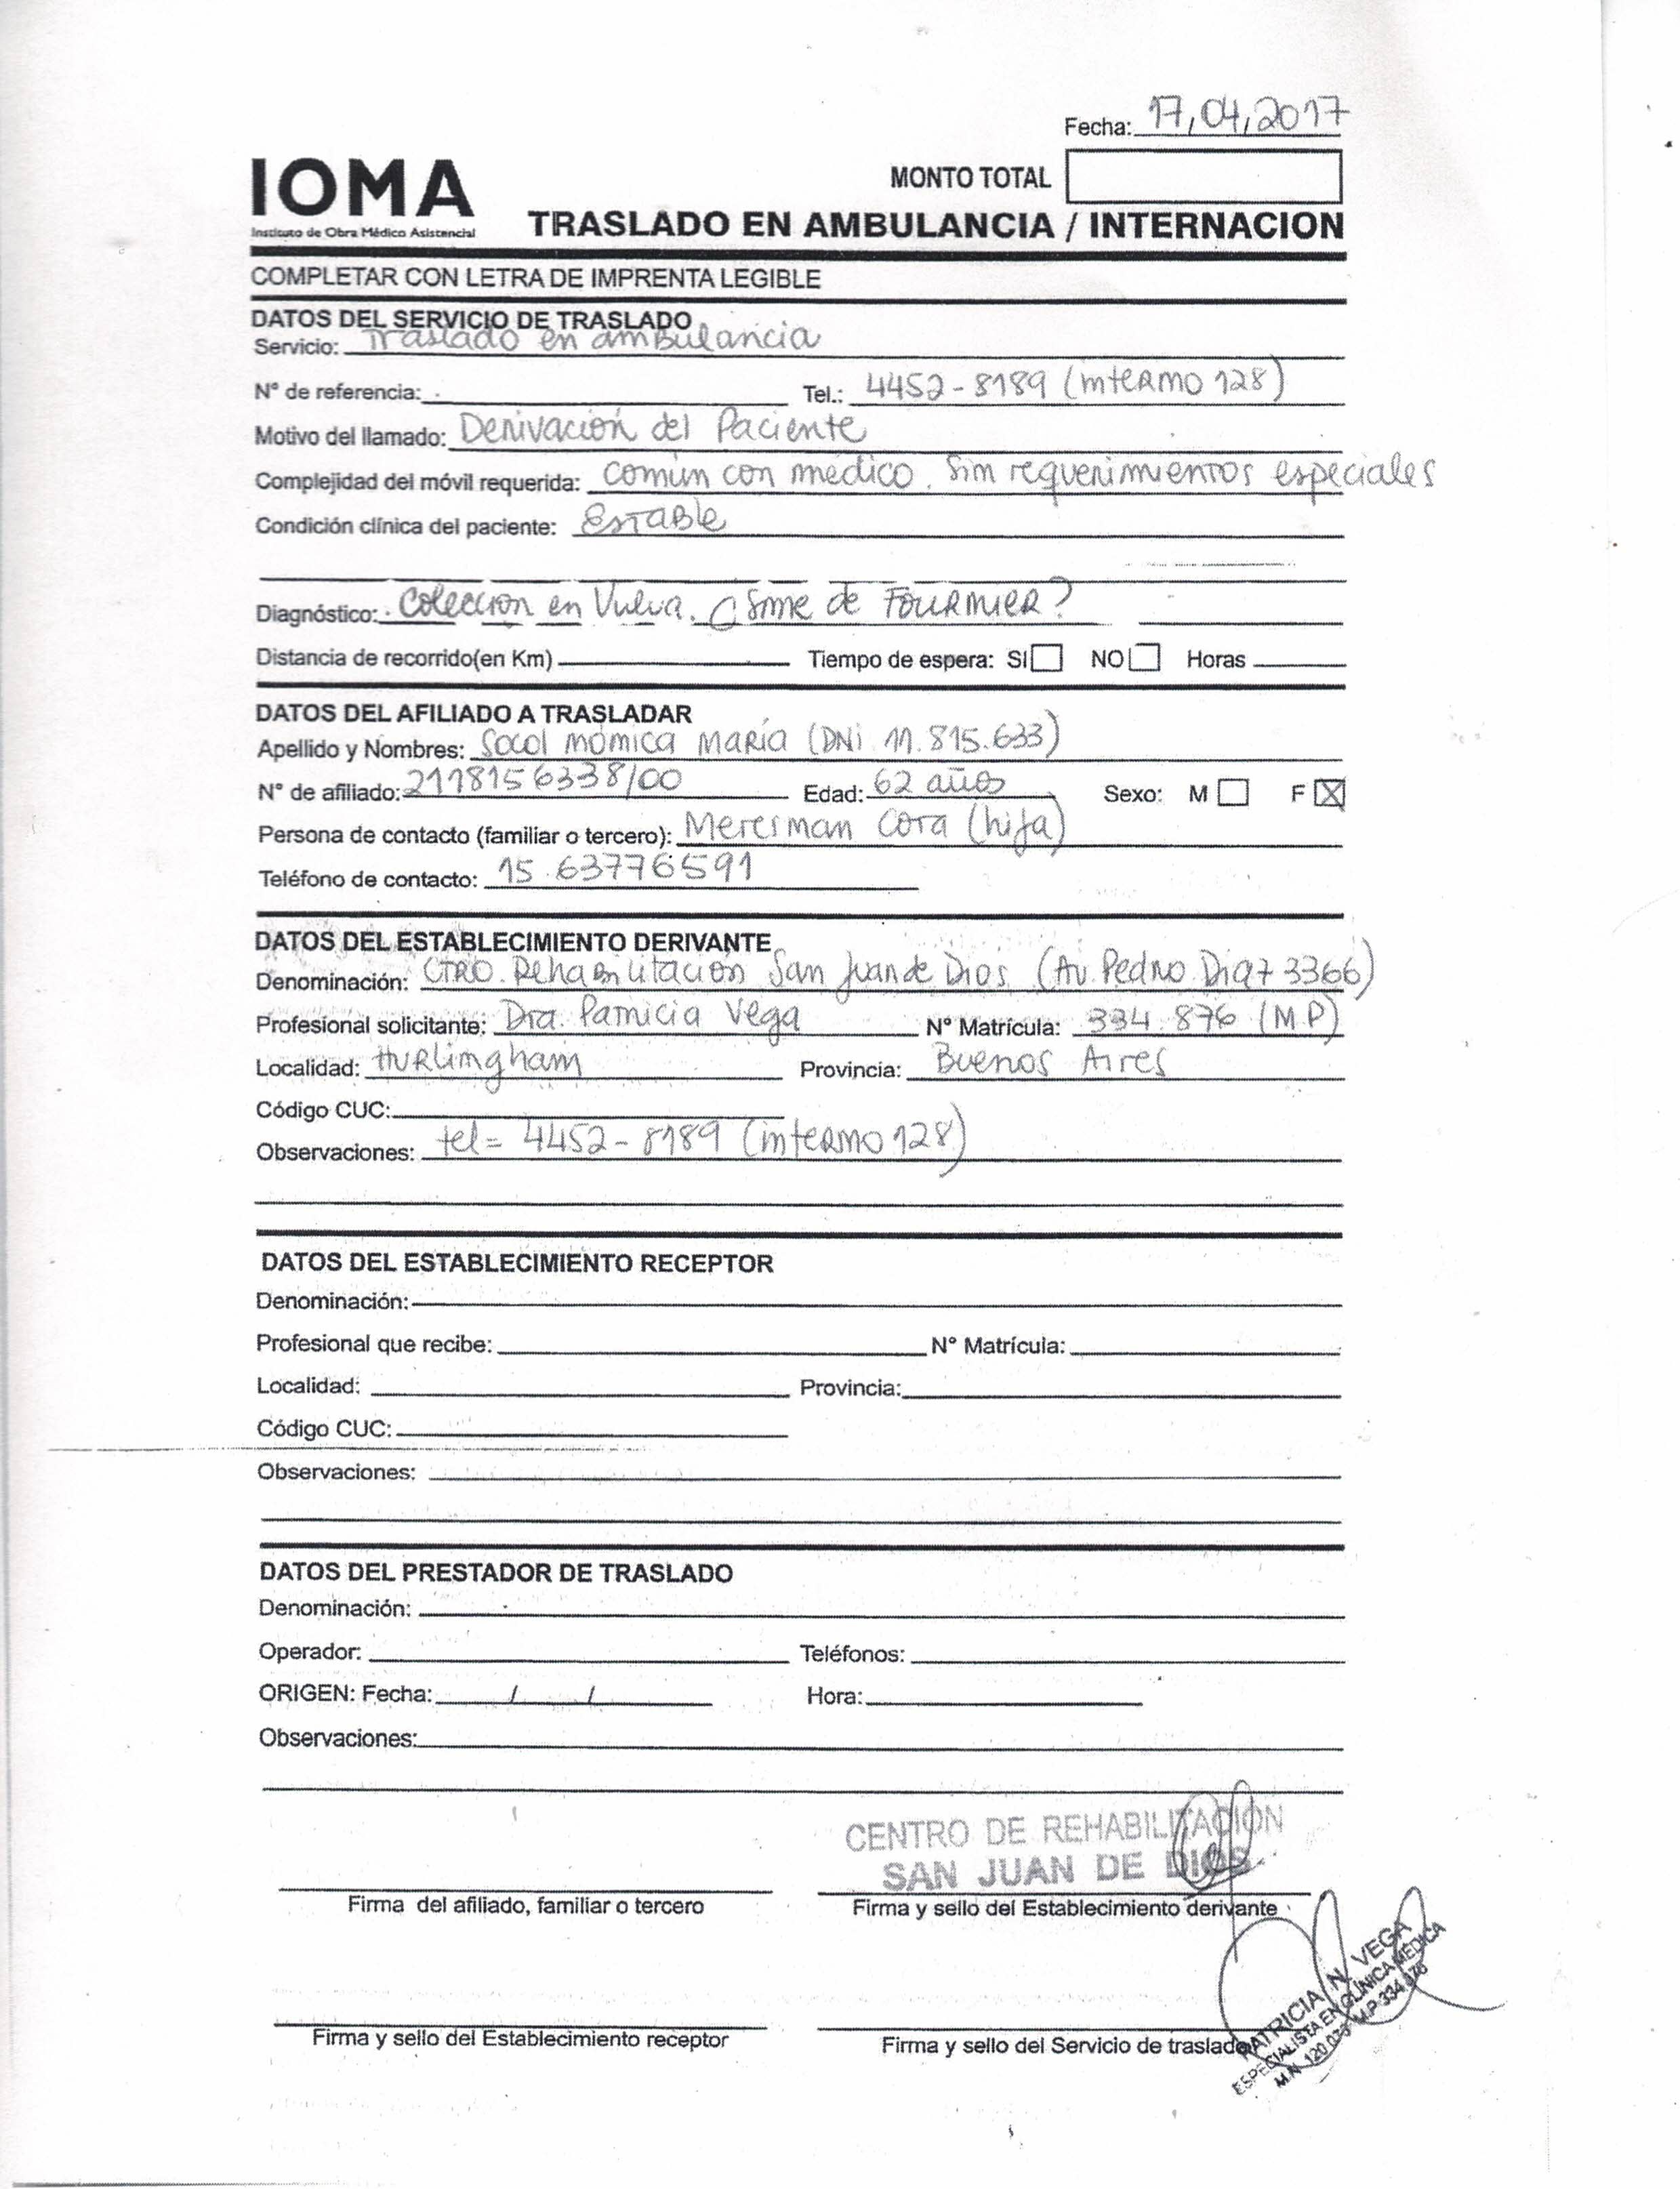 Fecha: 17,04,2017
IOMA
MONTO TOTAL
Instituto de Obra Médico Asistencial
TRASLADO EN AMBULANCIA / INTERNACION
COMPLETAR CON LETRA DE IMPRENTA LEGIBLE
DATOS DEL SERVICIO DE TRASLADO
Servicio: Traslado en ambulancia
N° de referencia: Tel.: 4452-8189 (interno 128)
Motivo del llamado: Derivación del Paciente
Complejidad del móvil requerida: común con médico. Sin requerimientos especiales
Condición clínica del paciente: Estable
Diagnóstico: Colección en Vulva. ¿Sme de Fournier?
Distancia de recorrido(en Km) Tiempo de espera: SI NO Horas
DATOS DEL AFILIADO A TRASLADAR
Apellido y Nombres: Socol Mónica María (DNI 11.815.633)
N° de afiliado: 2118156338/00 Edad: 62 años Sexo: M F X
Persona de contacto (familiar o tercero): Meresman Cora (hija)
Teléfono de contacto: 15.63776591
DATOS DEL ESTABLECIMIENTO DERIVANTE
Denominación: CTRO. Rehabilitación San Juan de Dios (Av. Pedro Diaz 3366)
Profesional solicitante: Dra. Patricia Vega N° Matrícula: 334.876 (MP)
Localidad: Hurlingham Provincia: Buenos Aires
Código CUC:
Observaciones: tel= 4452-8189 (interno 128)
DATOS DEL ESTABLECIMIENTO RECEPTOR
Denominación:
Profesional que recibe: N° Matrícula:
Localidad: Provincia:
Código CUC:
Observaciones:
DATOS DEL PRESTADOR DE TRASLADO
Denominación:
Operador: Teléfonos:
ORIGEN: Fecha: / / Hora:
Observaciones:
CENTRO DE REHABILITACION
SAN JUAN DE DIOS
Firma del afiliado, familiar o tercero Firma y sello del Establecimiento derivante
PATRICIA N. VEGA
ESPECIALISTA EN CLÍNICA MÉDICA
M.P. 334.876
Firma y sello del Establecimiento receptor Firma y sello del Servicio de traslado